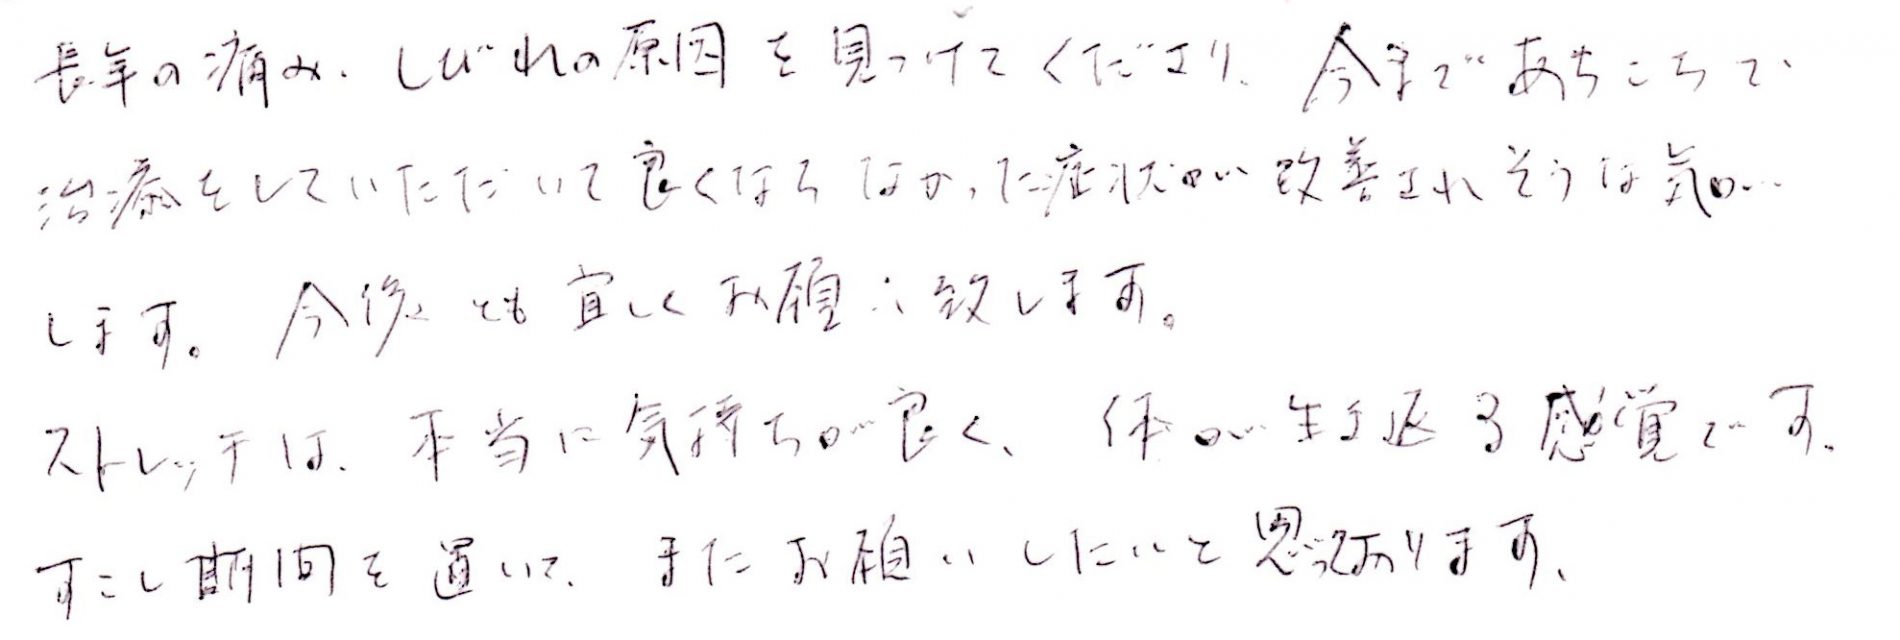 長年の痛み、しびれの原因を見つけてくださり、今まであちこちで
治療をしていただいて良くならなかった症状が改善されそうな気が
します。今後とも宜しくお願い致します。
ストレッチは、本当に気持ちが良く、体が生き返る感覚です。
すこし期間を置いて、またお願いしたいと思っております、